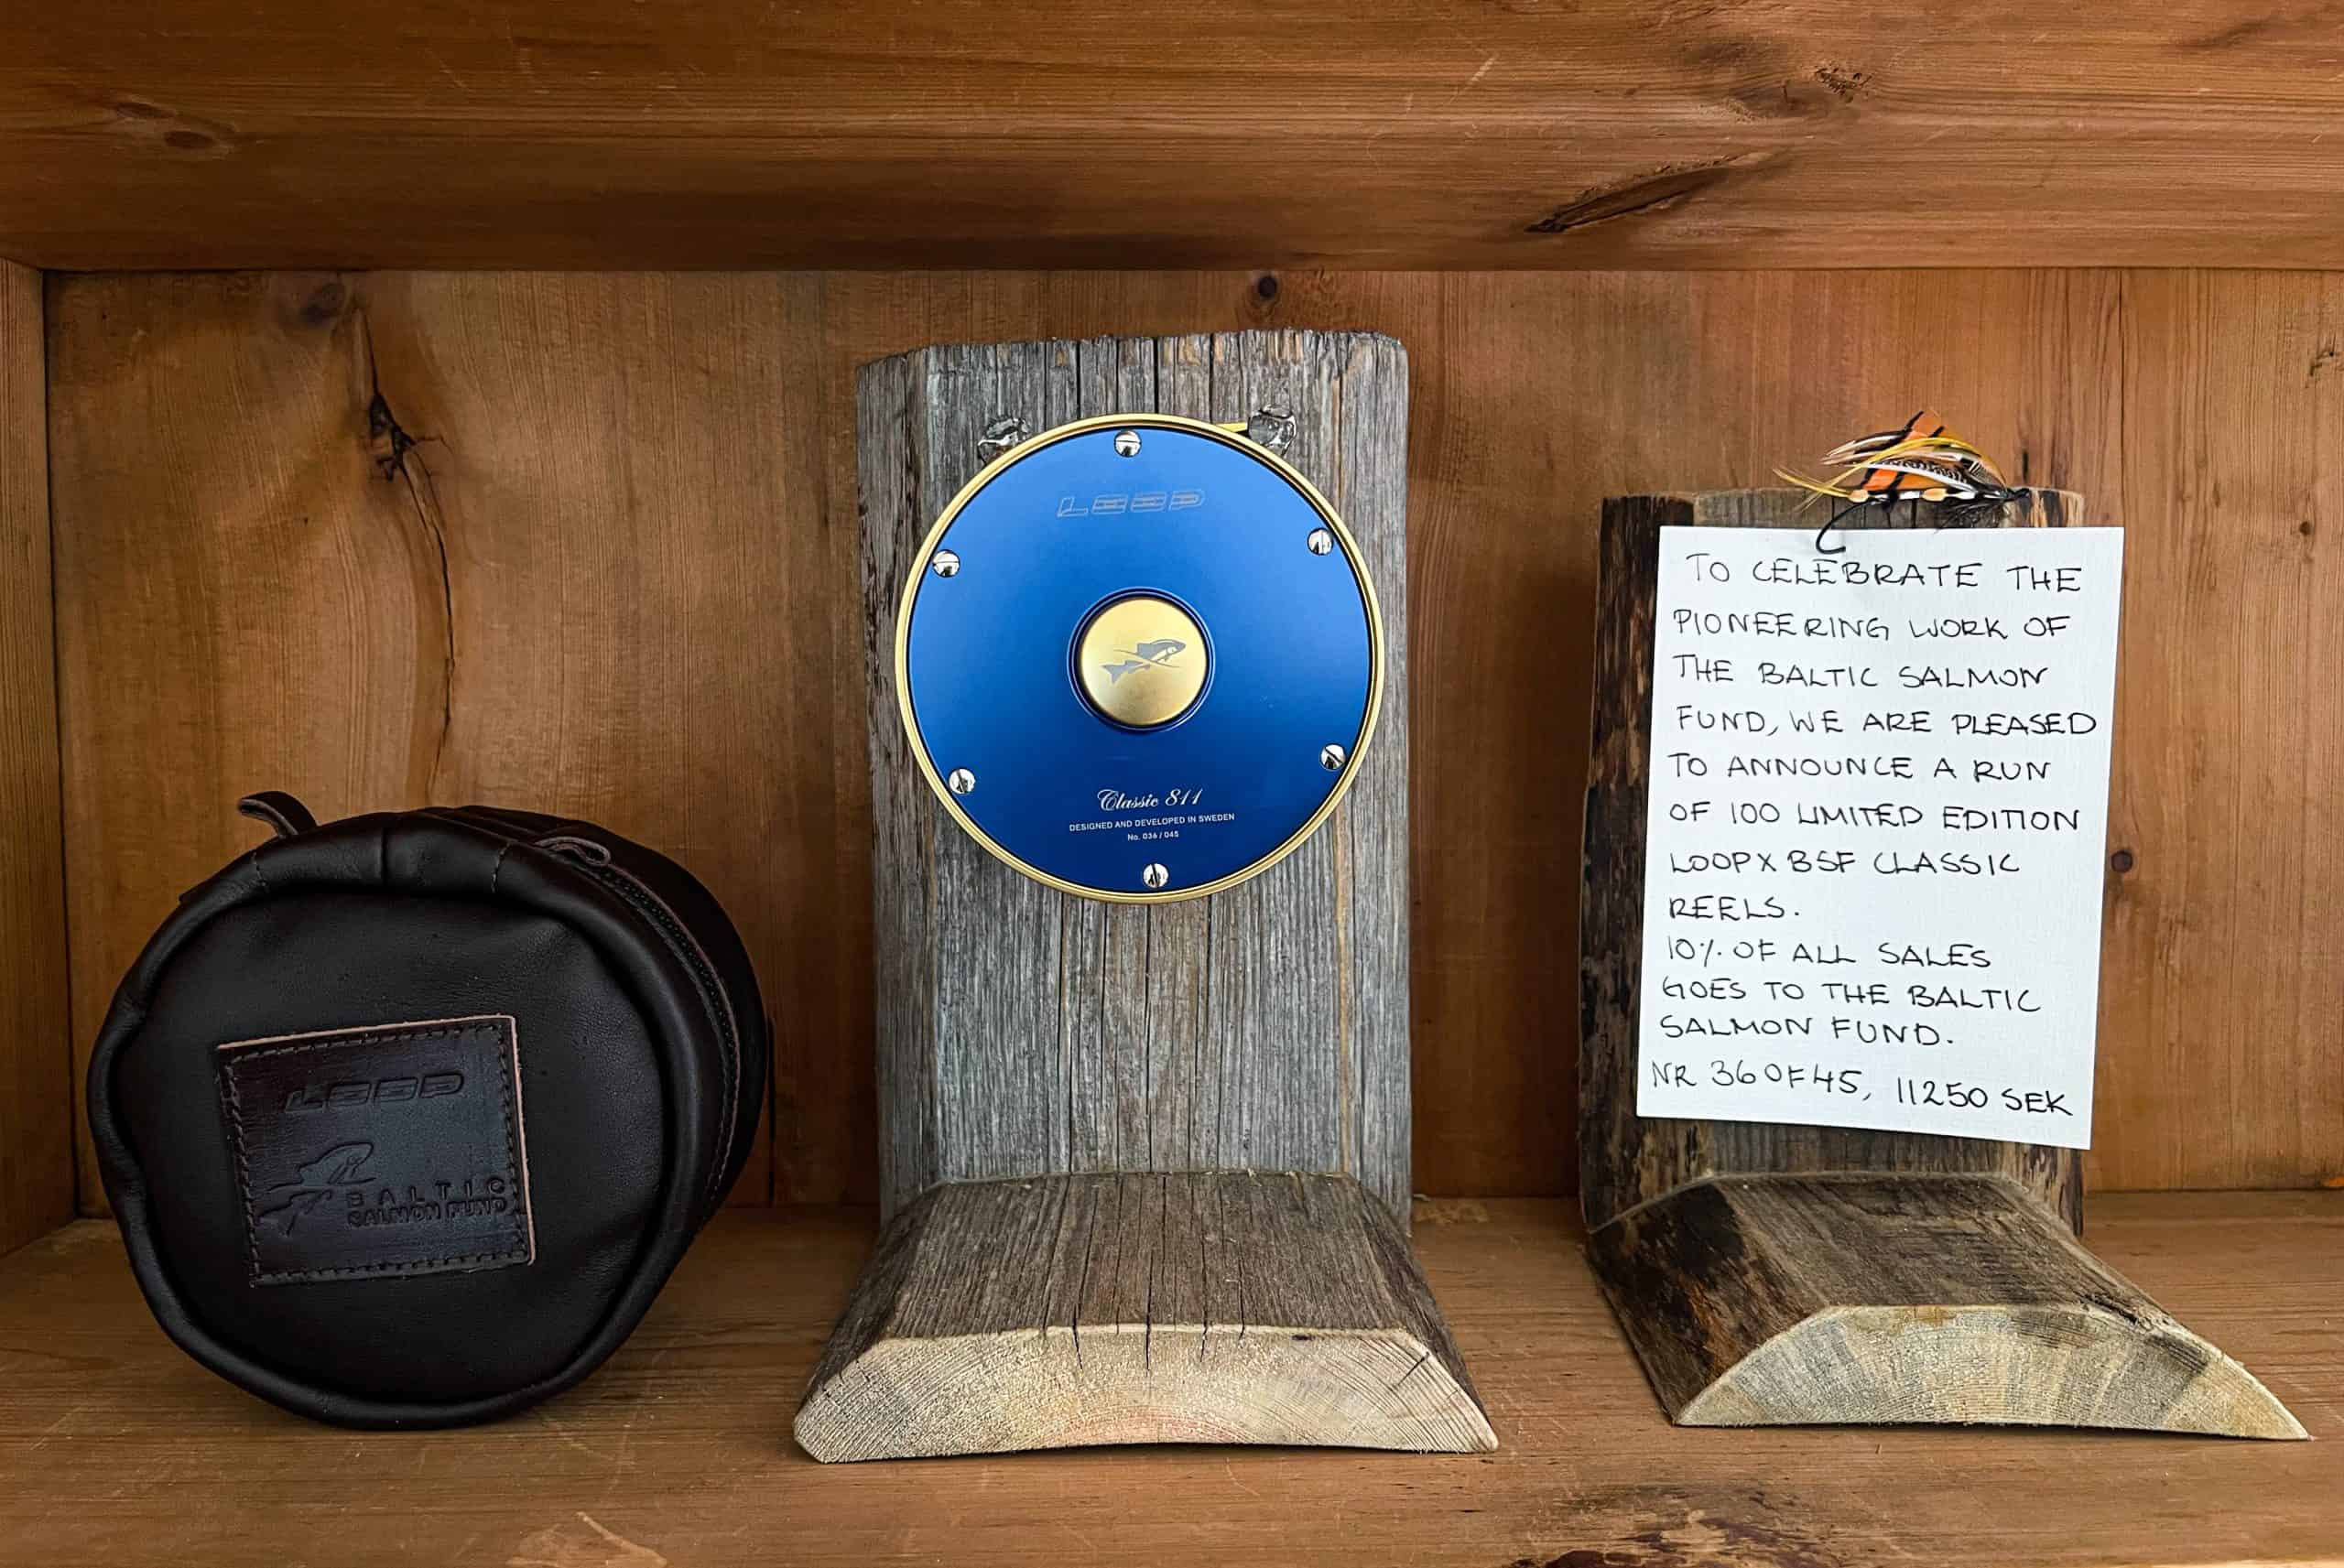 LOOP
BALTIC
SALMON FUND
LOOP
Classic 811
DESIGNED AND DEVELOPED IN SWEDEN
No. 036 / 045
TO CELEBRATE THE
PIONEERING WORK OF
THE BALTIC SALMON
FUND, WE ARE PLEASED
TO ANNOUNCE A RUN
OF 100 LIMITED EDITION
LOOP X BSF CLASSIC
REELS.
10% OF ALL SALES
GOES TO THE BALTIC
SALMON FUND.
NR 36 OF 45, 11250 SEK